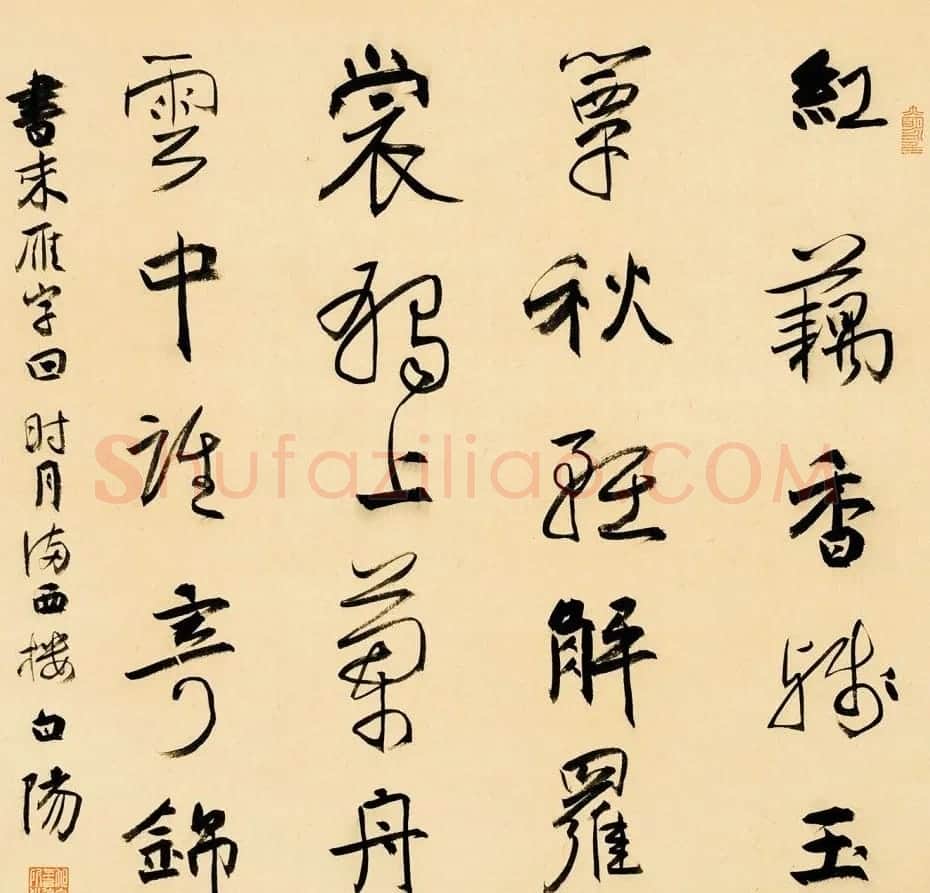 紅藕香殘玉
簟秋輕解羅
裳獨上蘭舟
雲中誰寄錦
書來雁字回 时月滿西樓 白陽
Shufaziliao.COM